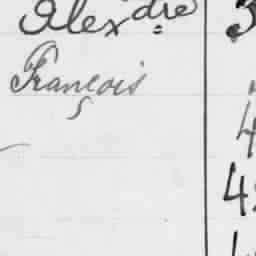 Alexdre 3
François
4
42